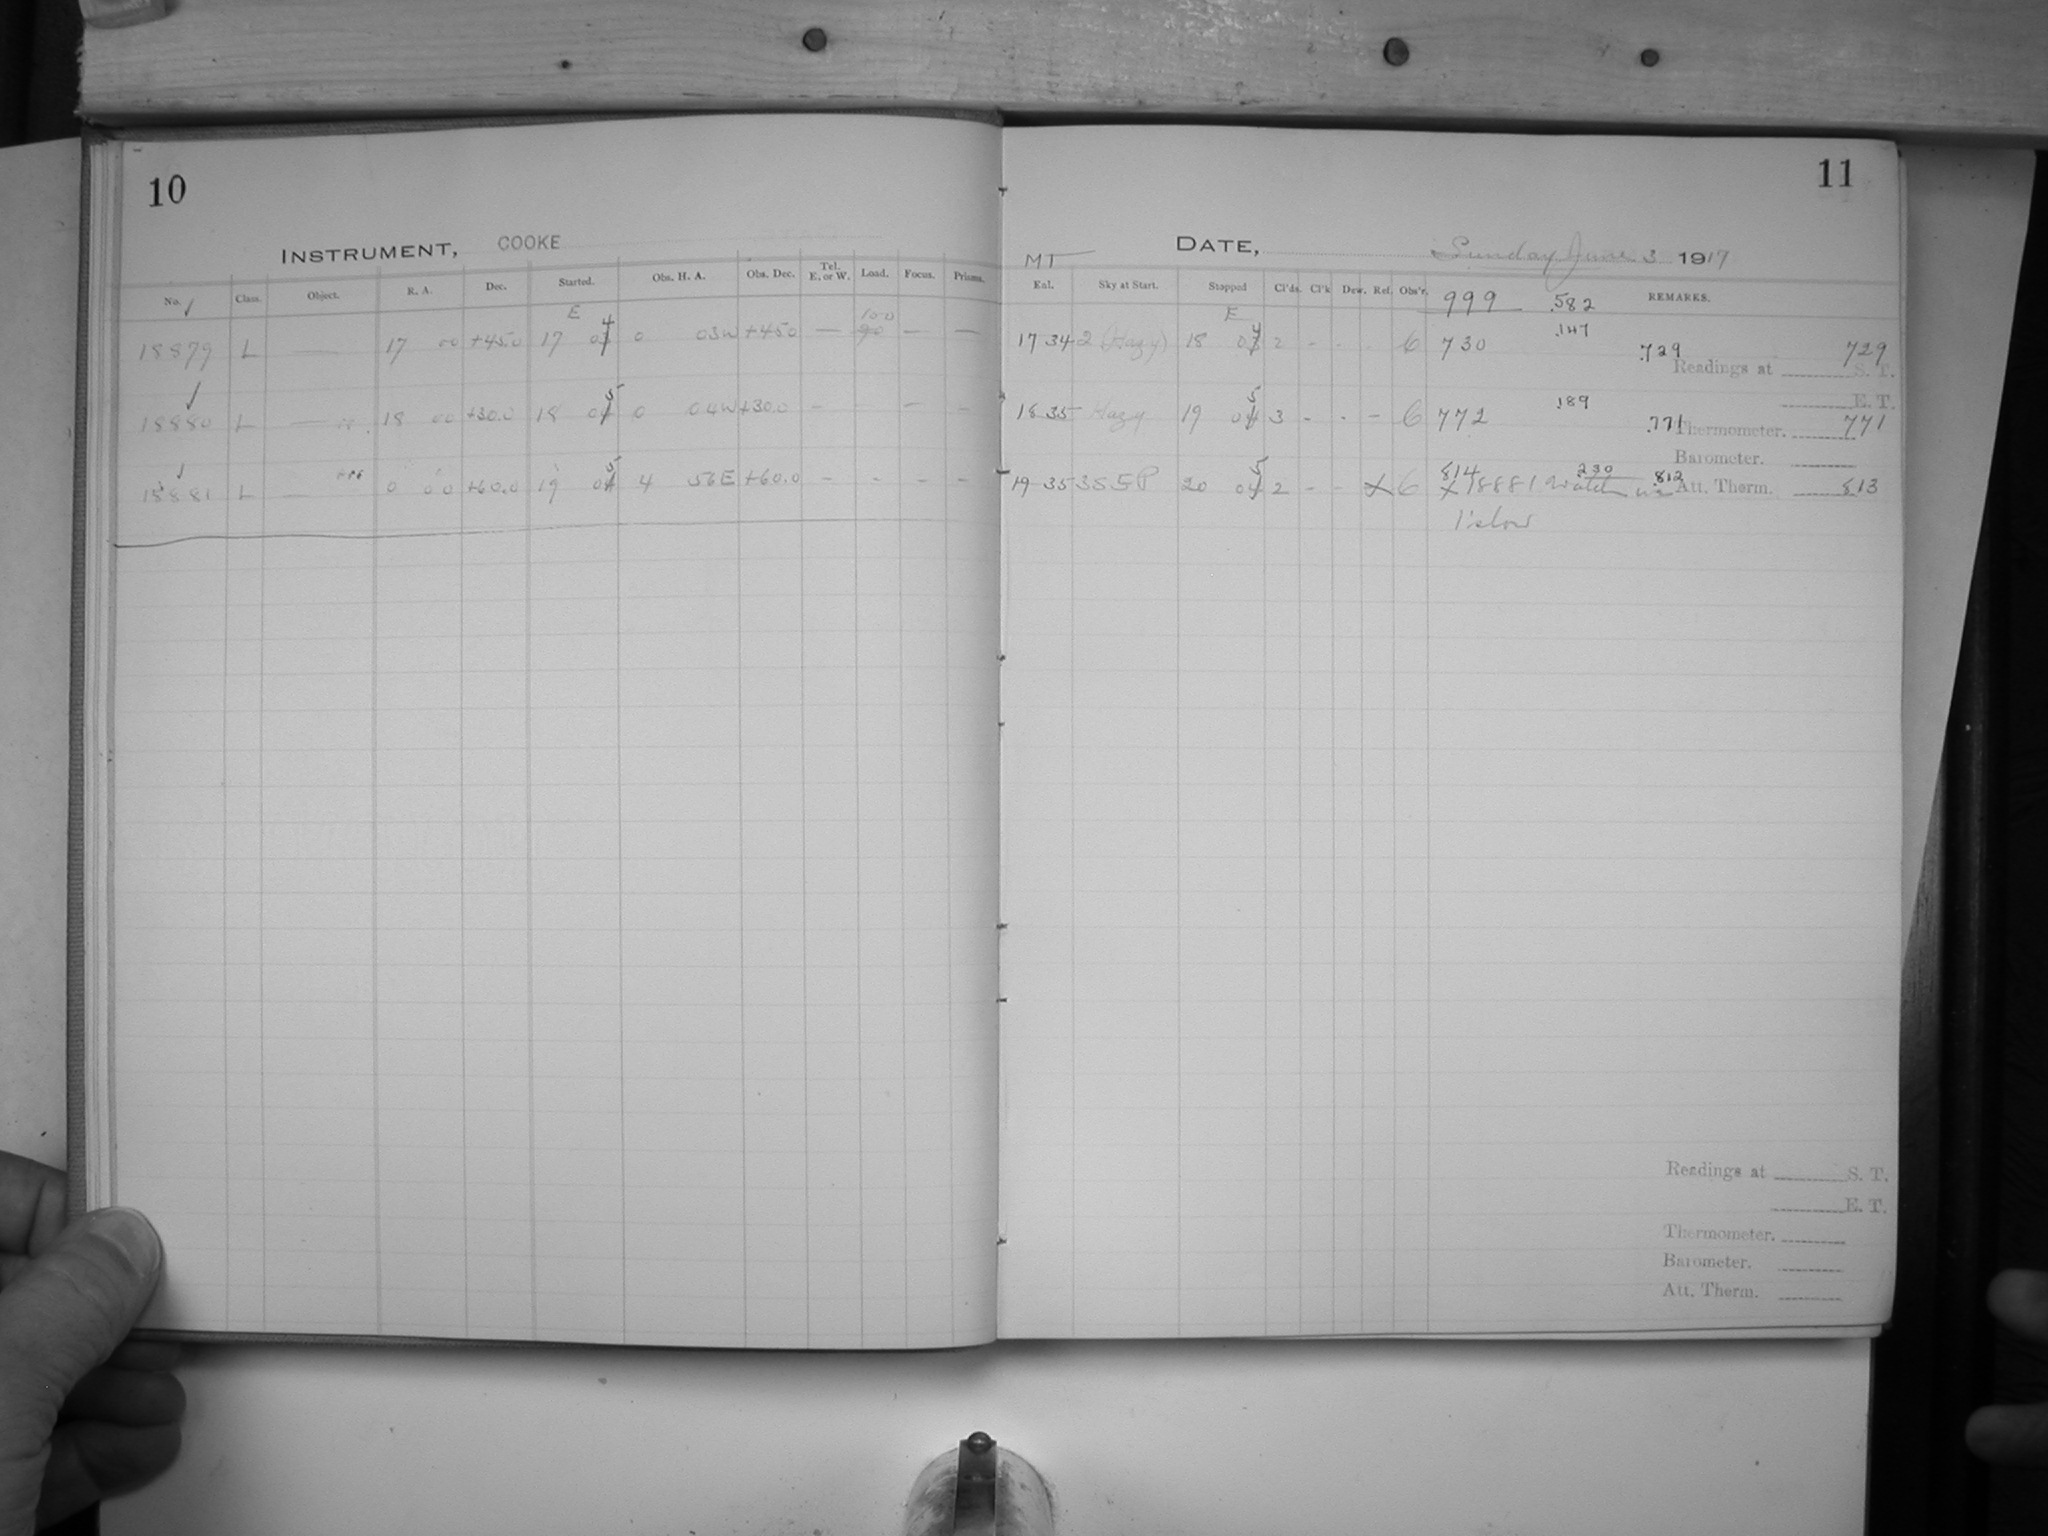 10
INSTRUMENT, COOKE
No. Class. Object. R. A. Dec. Started. Obs. H. A. Obs. Dec. Tel. E. or W. Load. Focus. Prisms.
E 100
18879 L — 17 00 +45.0 17 04 0 03W +45.0 — 90 — —
18880 L — 18 00 +30.0 18 05 0 04W +30.0 - - — -
18881 L — 0 00 +60.0 19 05 4 56E +60.0 - - - -
11
DATE, Sunday June 3 1917
MT
Eal. Sky at Start. Stopped Cl'ds. Cl'k Dew. Ref. Obs'r. 999 .582 REMARKS.
E
17 34 2 (Hazy) 18 04 2 - - 6 730 .147 .729 729
Readings at S. T.
E. T.
18 35 Hazy 19 05 3 - - - 6 772 .189 .771 Thermometer. 771
Barometer.
814 230 812
19 35 3S5P 20 05 2 - - X 6 X 18881 watch was Att. Therm. 813
1' slow
Readings at S. T.
E. T.
Thermometer.
Barometer.
Att. Therm.